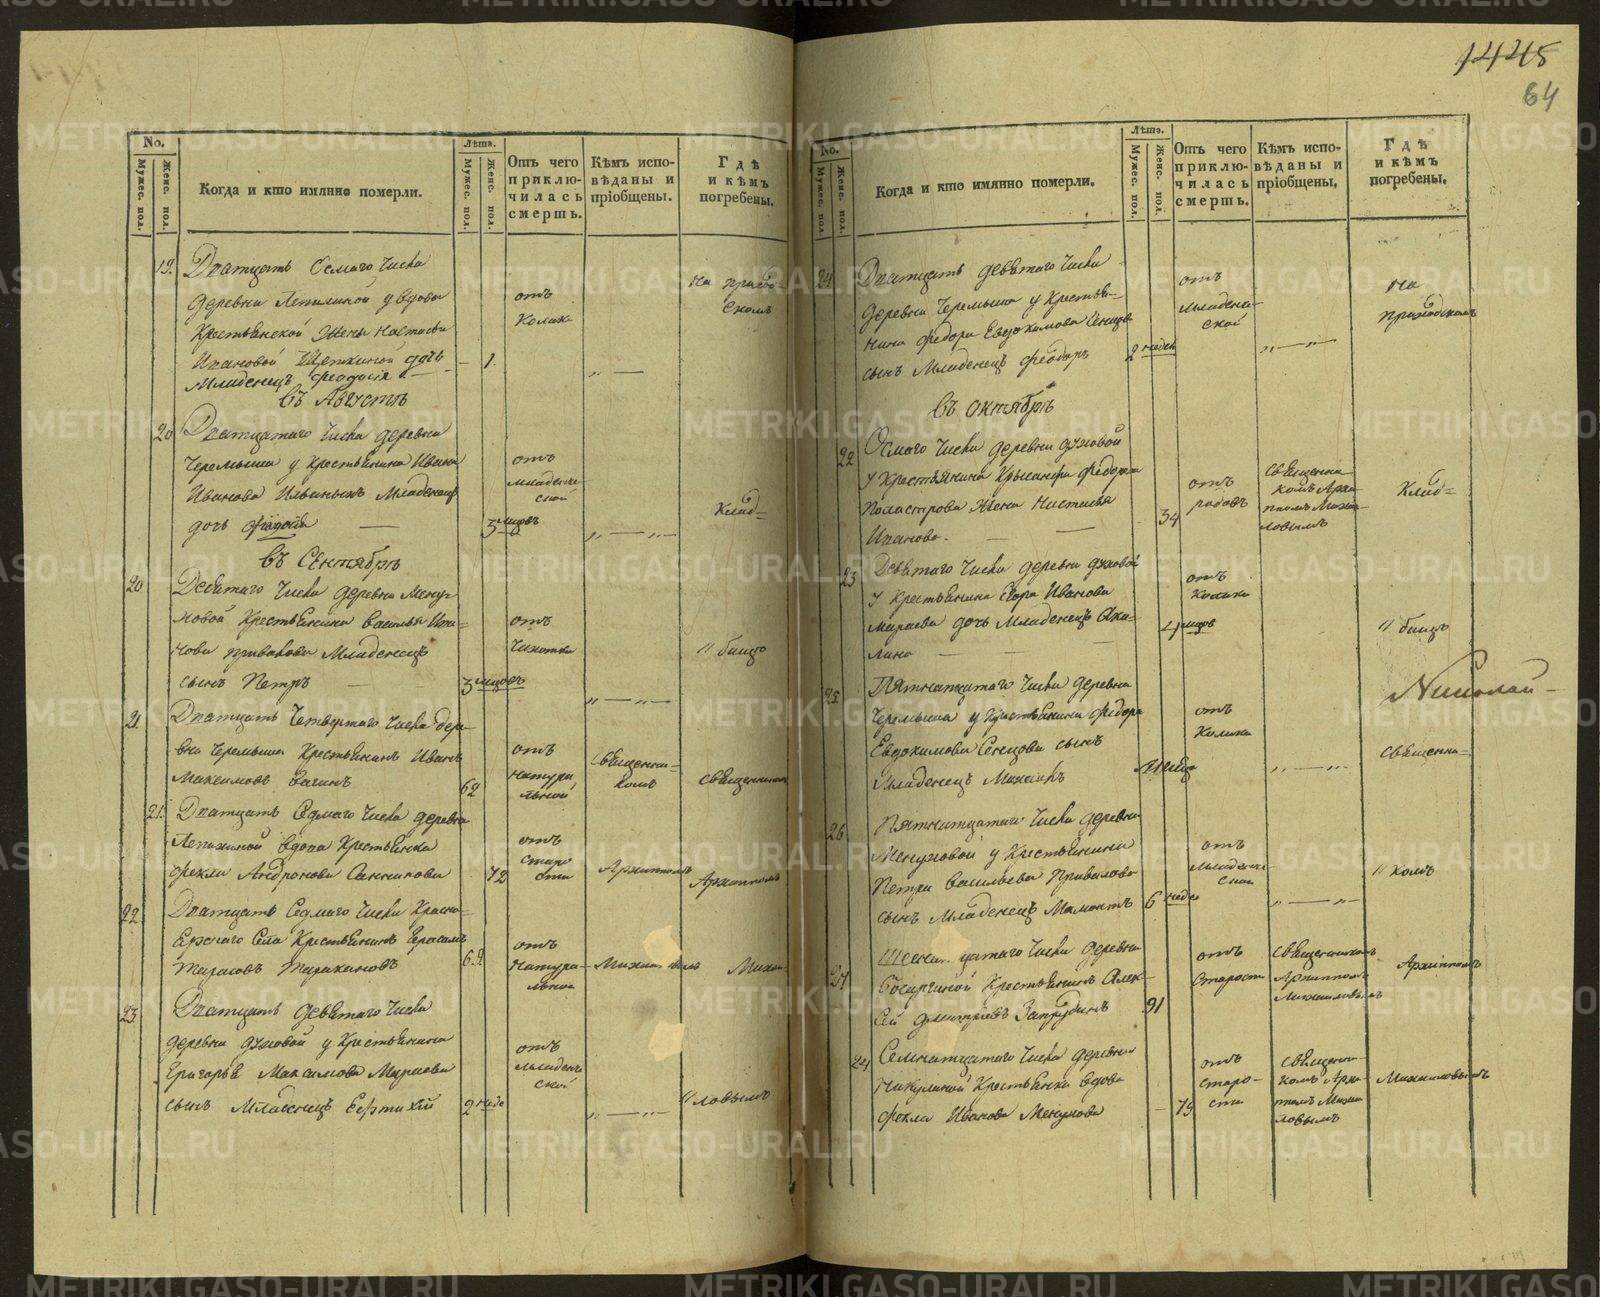 1445
64
No.
Мужес. пол.
Женс. пол.
Когда и кто имянно померли.
Лѣта.
Мужес. пол.
Женс. пол.
Отъ чего приклю-
чилась смерть.
Кѣмъ испо-
вѣданы и
пріобщены.
Гдѣ
и кѣмъ
погребены.
19.
Дватцать Семаго Числа
деревни Лепихиной у вдовы
Крестьянской Жены Настасьи
Ивановой дочь
Младенецъ Феодосія
1.
отъ
Колики
На приход
скомъ
въ Августѣ
20
Дватцатаго Числа деревни
Черемыша у Крестьянина Ивана
Иванова Младенецъ
дочь
3 мцовъ
отъ
младенче
ской
Клад=
въ Сентябрѣ
20
Девятаго Числа деревни Мену-
ховой Крестьянина Василья Ива=
нова Привалова Младенецъ
сынъ Петръ
3 мцовъ
отъ
Чихотки
// бищѣ
21
Дватцать Четвертаго Числа дере
вни Черемыша Крестьянинъ Иванъ
Максимовъ
62
отъ
Натура
льной
Священни-
комъ
Священникомъ
21.
Дватцать Седмаго Числа деревни
Лепихиной вдова Крестьянка
Фекла Андронова Санникова
72
отъ
Старо
сти
Архиппомъ
Архиппомъ
22
Дватцать Седмаго Числа Красно-
Ерскаго Села Крестьянинъ Герасимъ
Тарасовъ Таракановъ
69
отъ
Натура-
льной
Михаиловымъ
Михаи-
23.
Дватцать девятаго Числа
деревни духовой у Крестьянина
Григорья Максимова
сынъ Младенецъ Евтихій
2 неде
отъ
младенче
ской
// ловымъ
No.
Мужес. пол.
Женс. пол.
Когда и кто имянно померли.
Лѣта.
Мужес. пол.
Женс. пол.
Отъ чего
приклю-
чилась
смерть.
Кѣмъ испо-
вѣданы и
пріобщены.
Гдѣ
и кѣмъ
погребены.
24
Дватцать девятаго Числа
деревни Черемыша у Крестья-
нина Федора Евдокимова Сенцова
сынъ Младенецъ Феодоръ
2 недел
отъ
Младенче-
ской
На
приходскомъ
въ октябрѣ
22
Осмаго Числа деревни духовой
у Крестьянина Крысанфа Федорова
Жена Настасья
Иванова.
34
отъ
родовъ
Священни-
комъ Архи-
ппомъ Михаи-
ловымъ
Клад=
23
Девятаго Числа деревни духовой
у Крестьянина Егора Иванова
дочь Младенецъ Аки-
лина
4 мцовъ
отъ
Колики
// бищѣ
Николай
25
Пятнатцатаго Числа деревни
Черемыша у Крестьянина Федора
Евдокимова Сенцова сынъ
Младенецъ
отъ
Колики
Священни-
26
Пятнатцатаго Числа деревни
Менуховой у Крестьянина
Петра Васильева Привалова
сынъ Младенецъ Мамонтъ
6 неде
отъ
Младенче-
ской
// комъ
27
Шеснатцатаго Числа деревни
Крестьянинъ Алек-
сей Дмитріевъ Запрудинъ
91
отъ
Старости
Священникомъ
Архиппомъ
Михаиловымъ
Архиппомъ
24
Семнатцатаго Числа деревни
Никулиной Крестьянка вдова
Фекла Иванова Менухова
75
отъ
старо-
сти
Священни-
комъ Архи-
ппомъ Михаи-
ловымъ
Михаиловымъ
METRIKI.GASO-URAL.RU